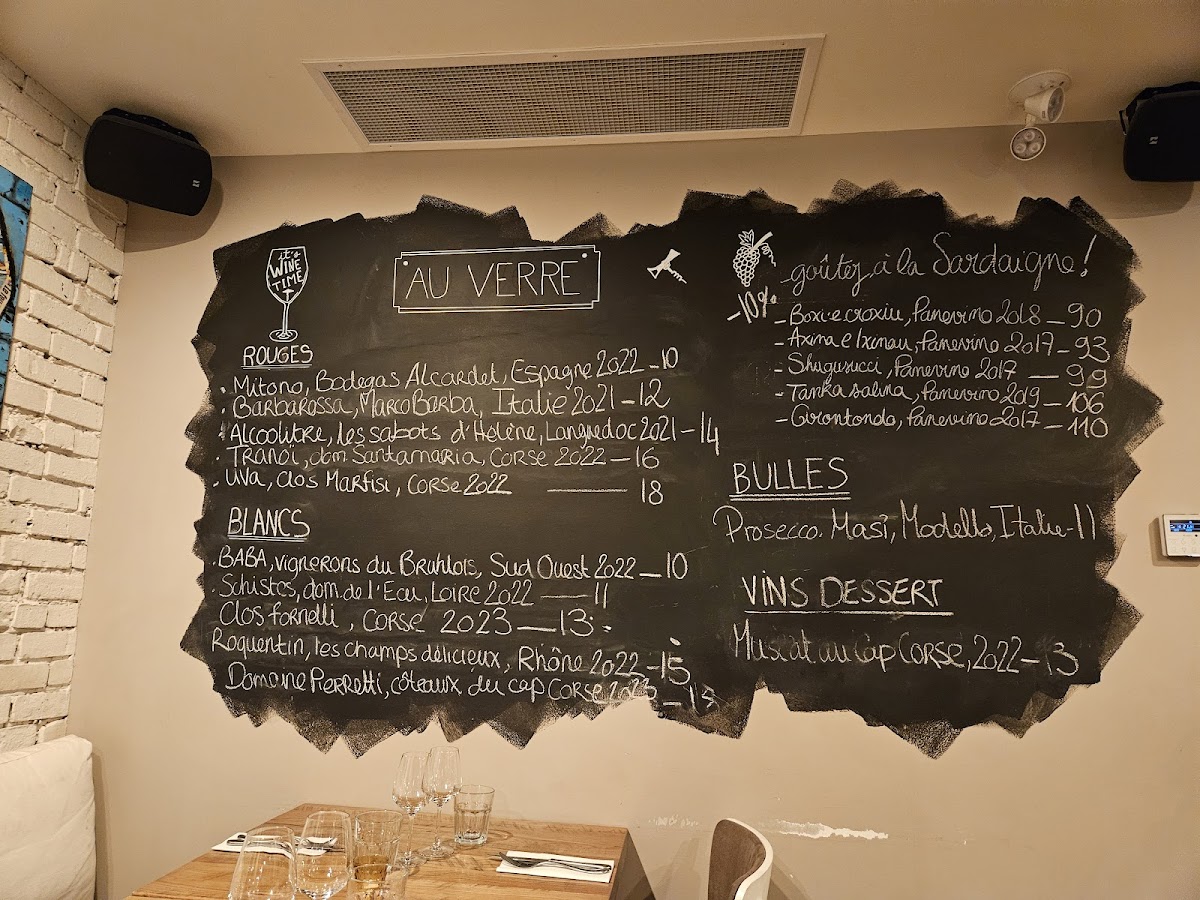 it's
WINE
TIME
AU VERRE
ROUGES
· Mitono, Bodegas Alcardet, Espagne 2022 — 10
· Barbarossa, Marco Barba, Italie 2021 - 12
· Alcoolitre, les sabots d'Hélène, Languedoc 2021 - 14
· Tranoï, dom Santamaria, Corse 2022 — 16
· UVa, Clos Marfisi, Corse 2022 — 18
BLANCS
· BABA, vignerons du Brulhois, Sud Ouest 2022 — 10
· Schistes, dom. de l'Eau, Loire 2022 — 11
Clos fornelli, Corse 2023 — 13
Roquentin, les champs délicieux, Rhône 2022 - 15
Domaine Pierretti, côteaux du cap Corse 2023 —
goûtez à la Sardaigne!
-10%
- Boxi e croxiu, Panevino 2018 — 90
- Axina e Ixinau, Panevino 2017 - 93
- Shugusucci, Panevino 2017 — 99
- Tanka salina, Panevino 2019 — 106
- Girontondo, Panevino 2017 — 110
BULLES
Prosecco. Masi, Modello, Italie - 11
VINS DESSERT
Muscat au Cap Corse, 2022 - 13